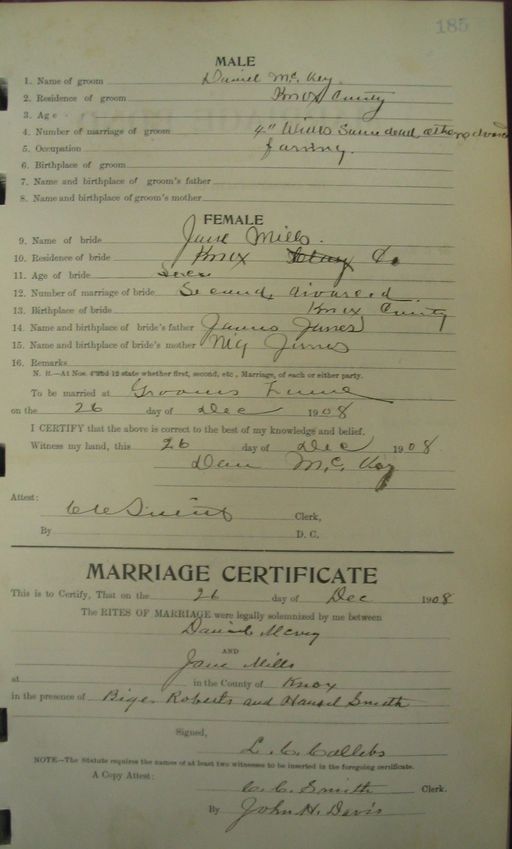 185
MALE
1. Name of groom Daniel Mc. Key.
2. Residence of groom Knox County
3. Age
4. Number of marriage of groom 4th Wives Some dead, others divorced
5. Occupation farming.
6. Birthplace of groom
7. Name and birthplace of groom's father
8. Name and birthplace of groom's mother
FEMALE
9. Name of bride Jane Mills.
10. Residence of bride Knox Co
11. Age of bride
12. Number of marriage of bride Second, divorced
13. Birthplace of bride Knox County
14. Name and birthplace of bride's father James Jones
15. Name and birthplace of bride's mother Jones
16. Remarks
N. B.—At Nos. 4 and 12 state whether first, second, etc., Marriage, of each or either party.
To be married at Grooms
on the 26 day of Dec 1908
I CERTIFY that the above is correct to the best of my knowledge and belief.
Witness my hand, this 26 day of Dec 1908
Dan Mc. Key
Attest:
C C Smith Clerk,
By D. C.
MARRIAGE CERTIFICATE
This is to Certify, That on the 26 day of Dec 1908
The RITES OF MARRIAGE were legally solemnized by me between
Daniel McVey
AND
Jane Mills
at in the County of Knox
in the presence of Roberts and Smith
Signed,
L. C. Callebs
NOTE—The Statute requires the names of at least two witnesses to be inserted in the foregoing certificate.
A Copy Attest:
C. C. Smith Clerk.
By John H. Davis